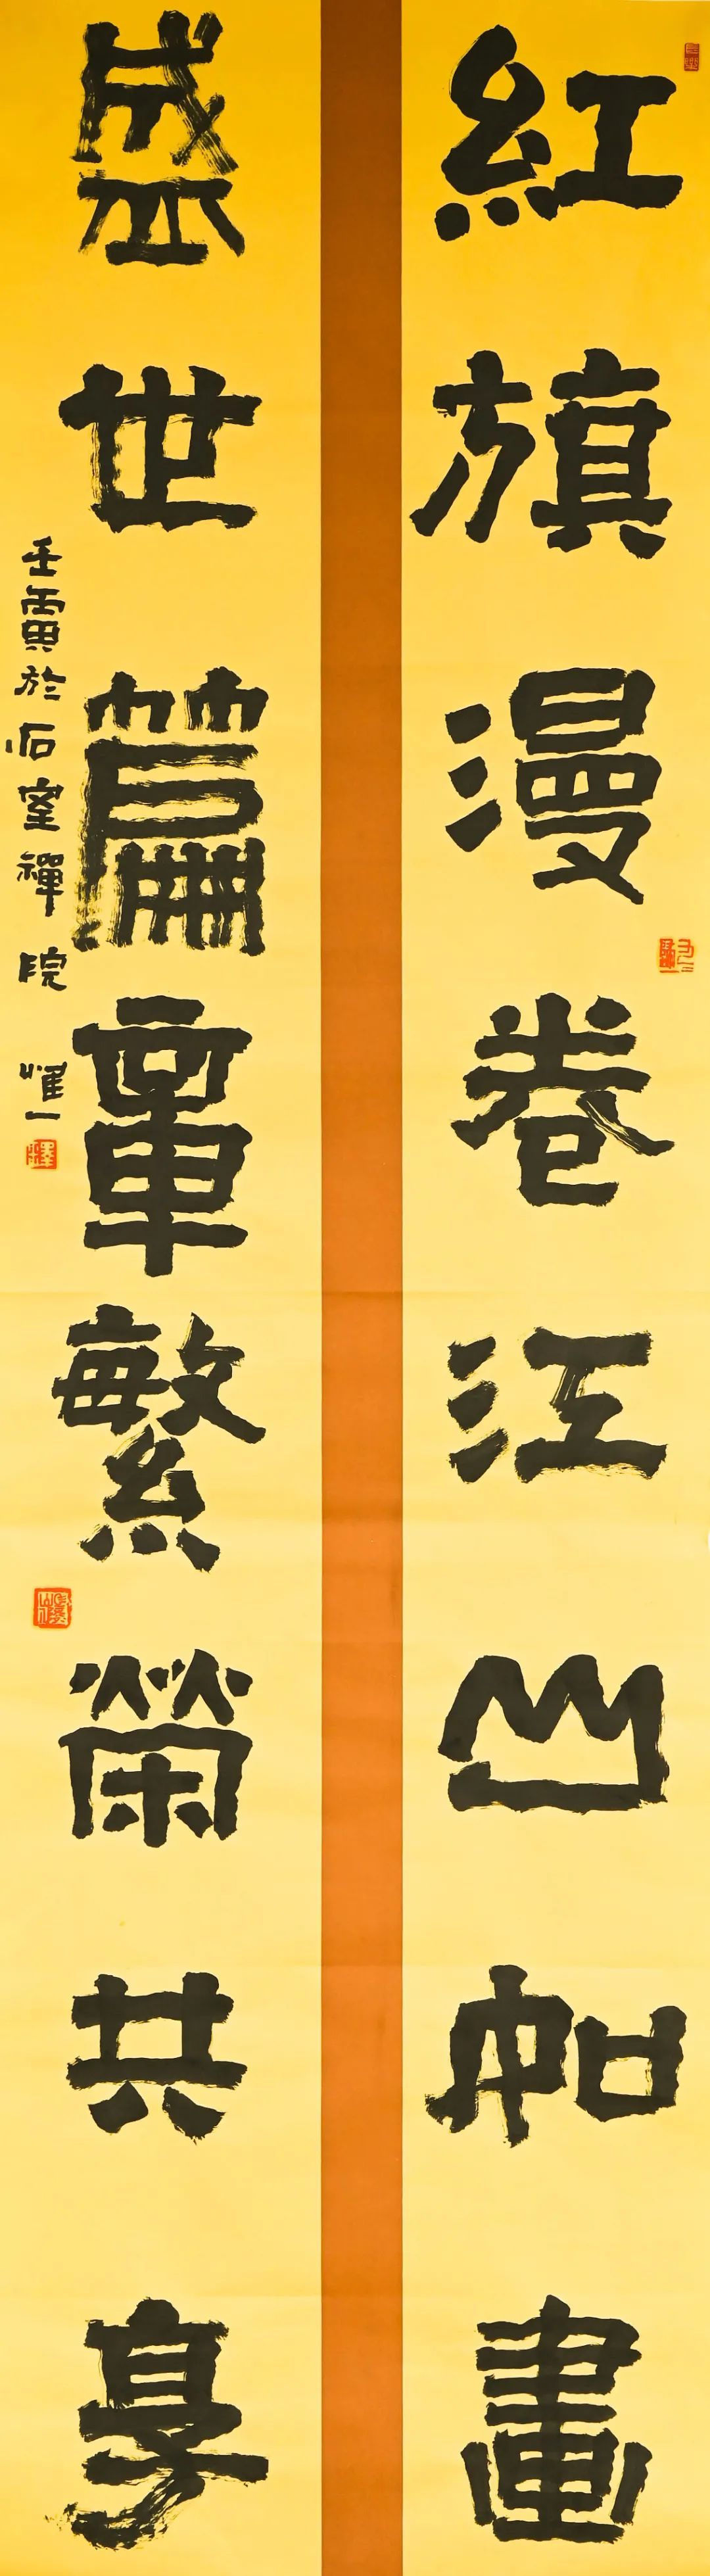 紅旗漫卷江山如畫
盛世篇章繁榮共享
壬寅於石室禪院 惟一